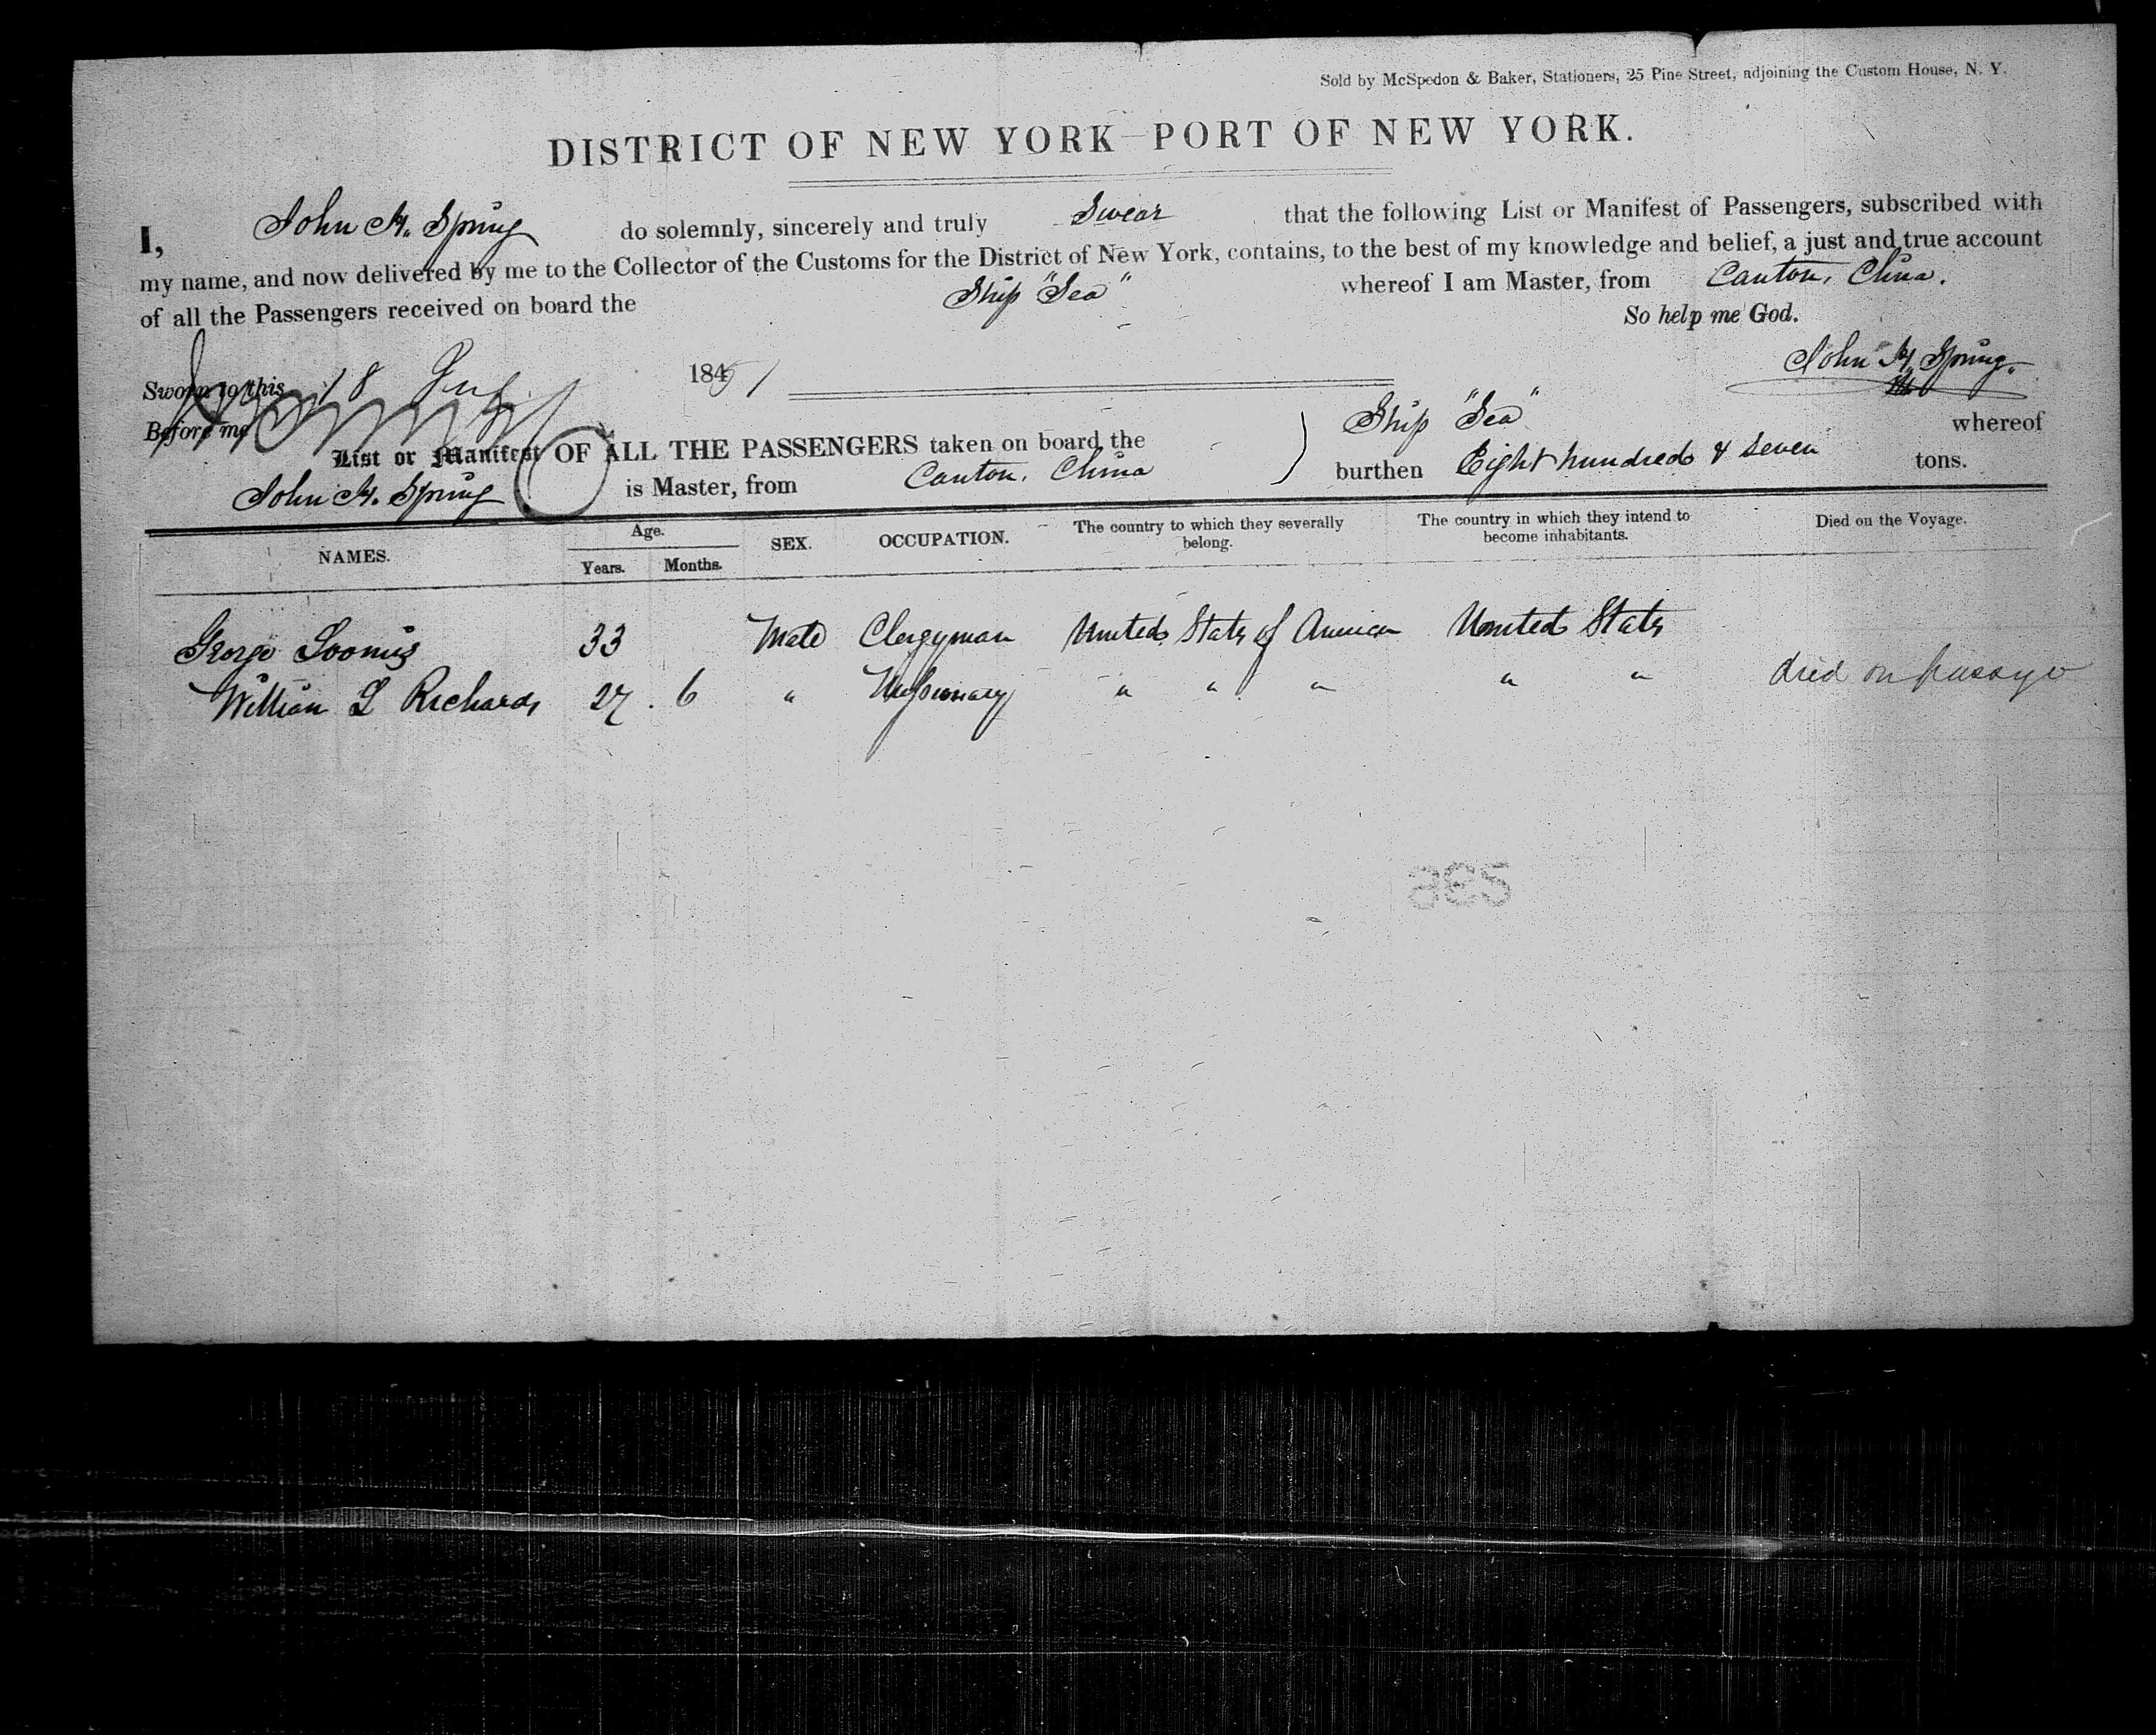 Sold by McSpedon & Baker, Stationers, 25 Pine Street, adjoining the Custom House, N. Y.
DISTRICT OF NEW YORK—PORT OF NEW YORK.
I, John H. Spring do solemnly, sincerely and truly Swear that the following List or Manifest of Passengers, subscribed with
my name, and now delivered by me to the Collector of the Customs for the District of New York, contains, to the best of my knowledge and belief, a just and true account
of all the Passengers received on board the Ship "Sea" whereof I am Master, from Canton, China.
So help me God.
Sworn to this 18 1851 John H. Spring.
Before me
List or Manifest OF ALL THE PASSENGERS taken on board the Ship "Sea" whereof
John H. Spring is Master, from Canton, China burthen Eight hundred & seven tons.
NAMES. Age. Years. Months. SEX. OCCUPATION. The country to which they severally belong. The country in which they intend to become inhabitants. Died on the Voyage.
George Loomis 33 Male Clergyman United States of America United States
William L Richards 27. 6 " Missionary " " " " " died on passage
296